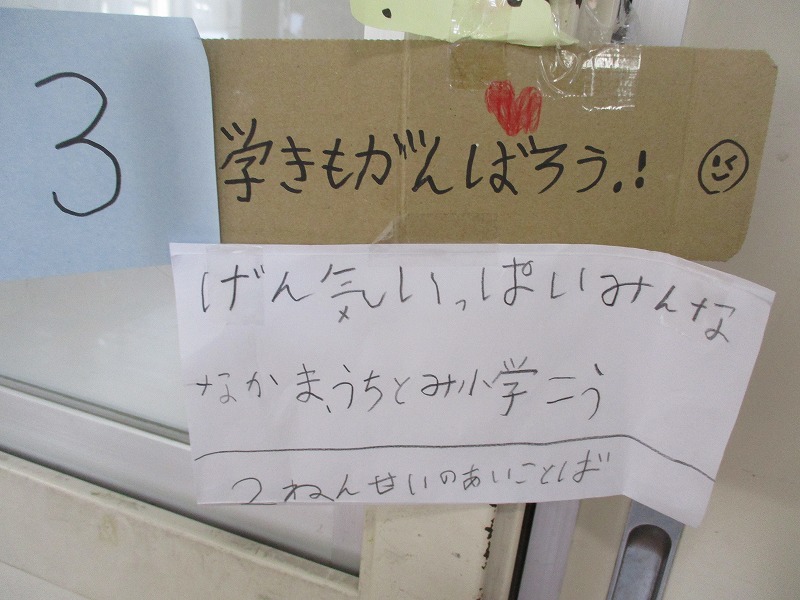 3学きもがんばろう.!
げん気いっぱいみんな
なかま,うちとみ小学こう
2ねんせいのあいことば